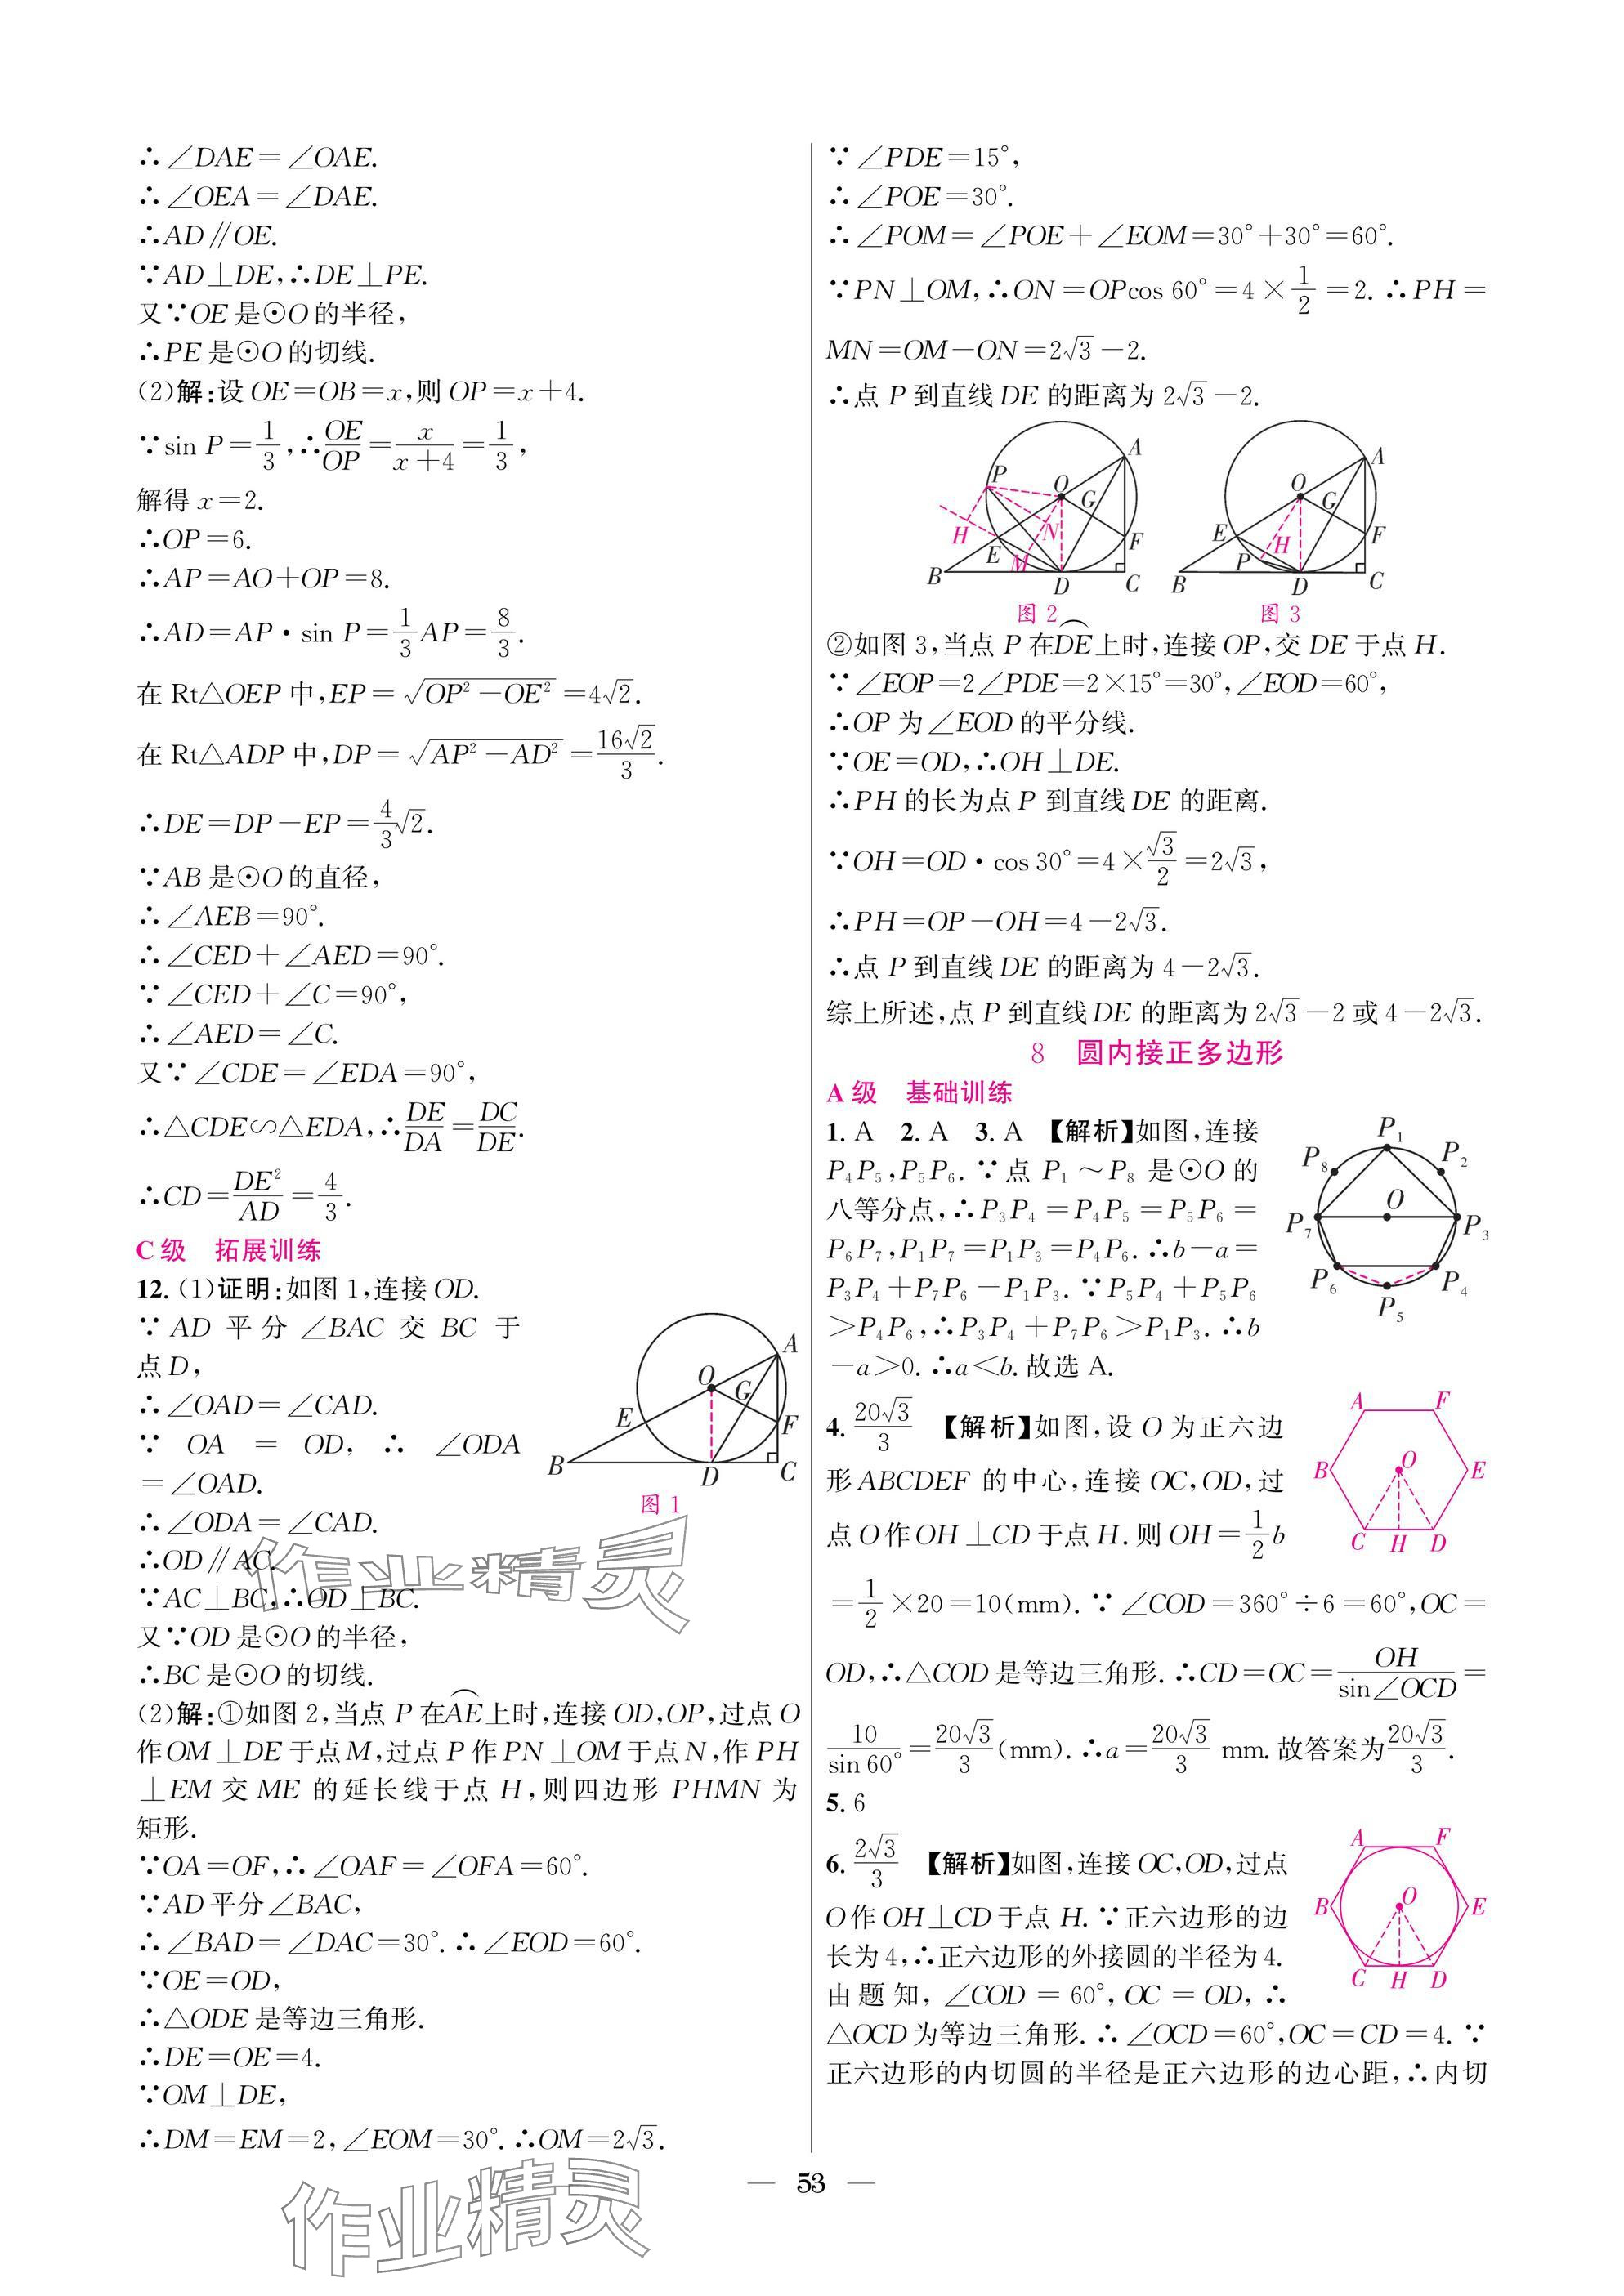 ∴∠DAE=∠OAE.
∴∠OEA=∠DAE.
∴AD∥OE.
∵AD⊥DE,∴DE⊥PE.
又∵OE是⊙O的半径,
∴PE是⊙O的切线.
(2)解:设OE=OB=x,则OP=x+4.
∵sin P=1/3,∴OE/OP=x/(x+4)=1/3,
解得x=2.
∴OP=6.
∴AP=AO+OP=8.
∴AD=AP·sin P=1/3AP=8/3.
在Rt△OEP中,EP=√(OP²-OE²)=4√2.
在Rt△ADP中,DP=√(AP²-AD²)=16√2/3.
∴DE=DP-EP=4/3√2.
∵AB是⊙O的直径,
∴∠AEB=90°.
∴∠CED+∠AED=90°.
∵∠CED+∠C=90°,
∴∠AED=∠C.
又∵∠CDE=∠EDA=90°,
∴△CDE∽△EDA,∴DE/DA=DC/DE.
∴CD=DE²/AD=4/3.
C级 拓展训练
12.(1)证明:如图1,连接OD.
∵AD平分∠BAC交BC于
点D,
∴∠OAD=∠CAD.
∵OA=OD,∴∠ODA
=∠OAD.
∴∠ODA=∠CAD.
∴OD∥AC.
∵AC⊥BC,∴OD⊥BC.
又∵OD是⊙O的半径,
∴BC是⊙O的切线.
A
O
G
E
F
B
D
C
图1
(2)解:①如图2,当点P在AE⌒上时,连接OD,OP,过点O
作OM⊥DE于点M,过点P作PN⊥OM于点N,作PH
⊥EM交ME的延长线于点H,则四边形PHMN为
矩形.
∵OA=OF,∴∠OAF=∠OFA=60°.
∵AD平分∠BAC,
∴∠BAD=∠DAC=30°.∴∠EOD=60°.
∵OE=OD,
∴△ODE是等边三角形.
∴DE=OE=4.
∵OM⊥DE,
∴DM=EM=2,∠EOM=30°.∴OM=2√3.
∵∠PDE=15°,
∴∠POE=30°.
∴∠POM=∠POE+∠EOM=30°+30°=60°.
∵PN⊥OM,∴ON=OPcos 60°=4×1/2=2.∴PH=
MN=OM-ON=2√3-2.
∴点P到直线DE的距离为2√3-2.
A
P
O
G
H
N
E
M
F
B
D
C
图2
A
O
G
E
H
F
P
B
D
C
图3
②如图3,当点P在DE⌒上时,连接OP,交DE于点H.
∵∠EOP=2∠PDE=2×15°=30°,∠EOD=60°,
∴OP为∠EOD的平分线.
∵OE=OD,∴OH⊥DE.
∴PH的长为点P到直线DE的距离.
∵OH=OD·cos 30°=4×√3/2=2√3,
∴PH=OP-OH=4-2√3.
∴点P到直线DE的距离为4-2√3.
综上所述,点P到直线DE的距离为2√3-2或4-2√3.
8 圆内接正多边形
A级 基础训练
1.A 2.A 3.A 【解析】如图,连接
P₄P₅,P₅P₆.∵点P₁~P₈是⊙O的
八等分点,∴P₃P₄=P₄P₅=P₅P₆=
P₆P₇,P₁P₇=P₁P₃=P₄P₆.∴b-a=
P₃P₄+P₇P₆-P₁P₃.∵P₅P₄+P₅P₆
>P₄P₆,∴P₃P₄+P₇P₆>P₁P₃.∴b
-a>0.∴a<b.故选A.
P₁
P₂
P₈
O
P₇
P₃
P₆
P₄
P₅
4.20√3/3 【解析】如图,设O为正六边
形ABCDEF的中心,连接OC,OD,过
点O作OH⊥CD于点H.则OH=1/2b
A
F
B
O
E
C
H
D
=1/2×20=10(mm).∵∠COD=360°÷6=60°,OC=
OD,∴△COD是等边三角形.∴CD=OC=OH/sin∠OCD=
10/sin 60°=20√3/3(mm).∴a=20√3/3 mm.故答案为20√3/3.
5.6
6.2√3/3 【解析】如图,连接OC,OD,过点
O作OH⊥CD于点H.∵正六边形的边
长为4,∴正六边形的外接圆的半径为4.
由题知,∠COD=60°,OC=OD,∴
A
F
B
O
E
C
H
D
△OCD为等边三角形.∴∠OCD=60°,OC=CD=4.∵
正六边形的内切圆的半径是正六边形的边心距,∴内切
— 53 —
作业精灵
作业精灵